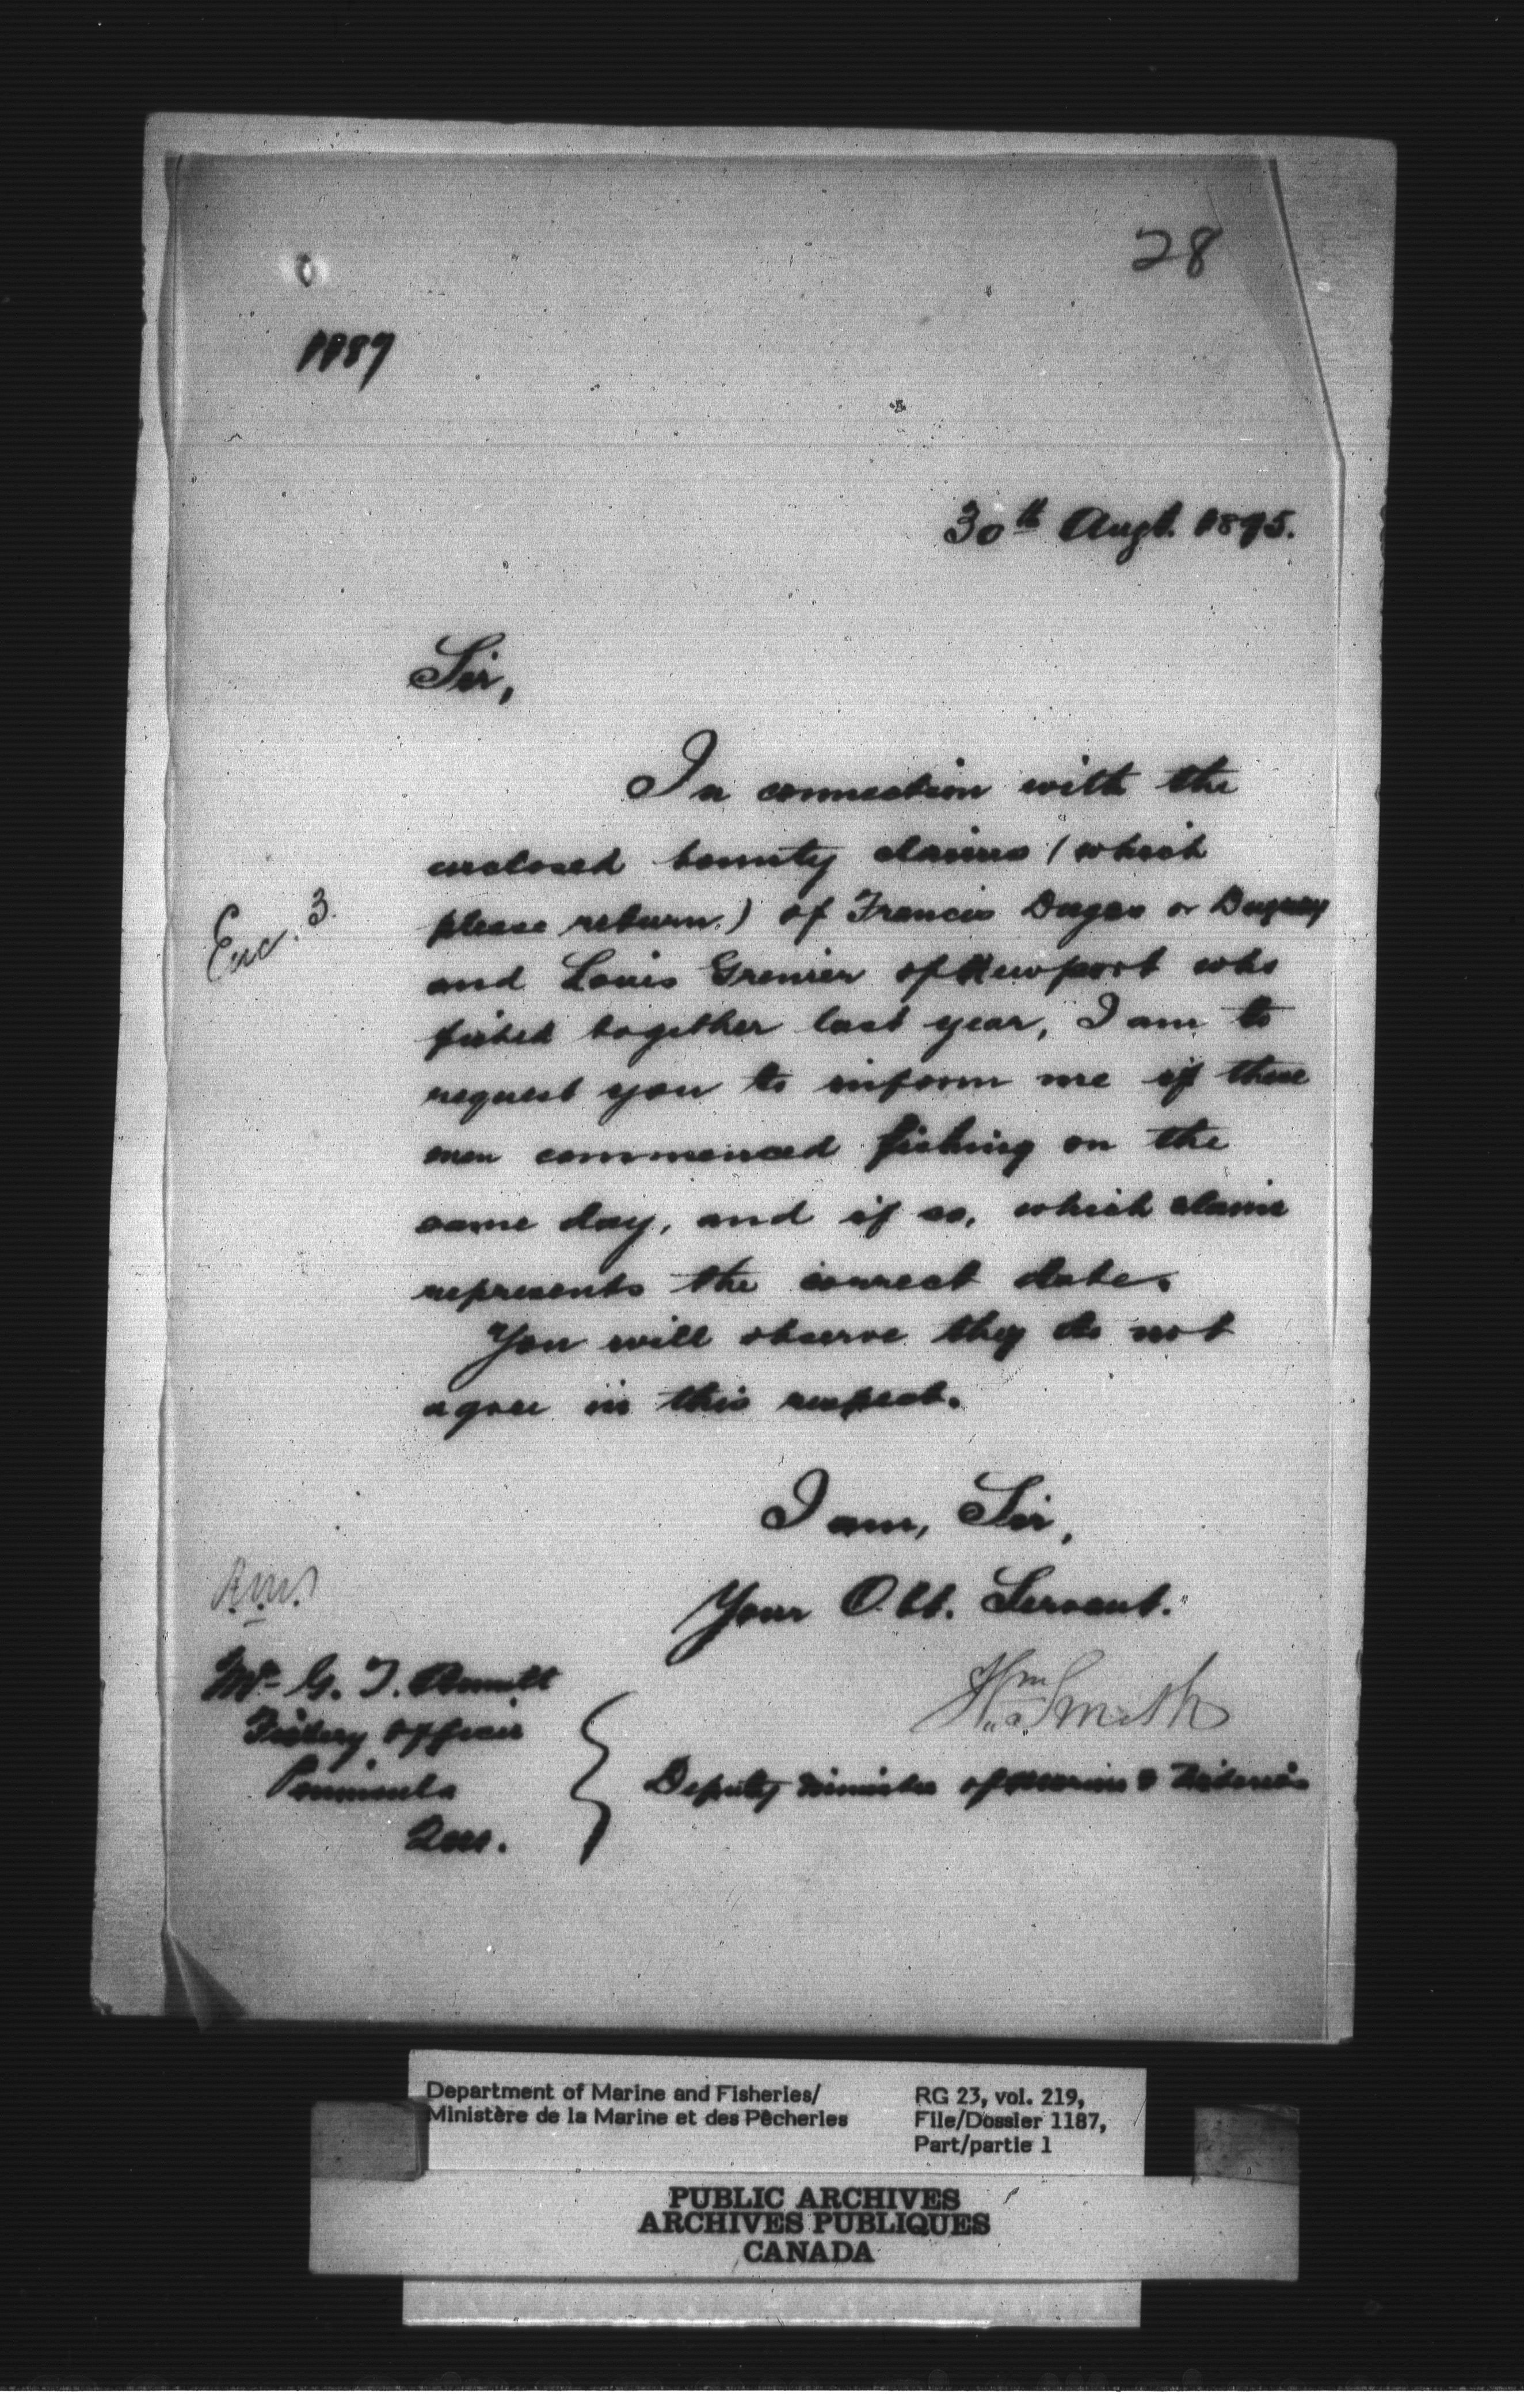 28
1187
30th Augt. 1895.
Sir,
In connection with the
enclosed bounty claims (which
please return.) of Francis Dugas or Duguay
Enc. 3.
and Louis Grenier of Newport who
fished together last year, I am to
request you to inform me if these
men commenced fishing on the
same day, and if so, which claim
represents the correct date.
You will observe they do not
agree in this respect.
I am, Sir,
Your Obt. Servant.
Wm Smith
Deputy Minister of Marine & Fisheries
Mr. G. T. Annett
Fishery Officer
Peninsula
Que.
Department of Marine and Fisheries/
Ministère de la Marine et des Pêcheries
RG 23, vol. 219,
File/Dossier 1187,
Part/partie 1
PUBLIC ARCHIVES
ARCHIVES PUBLIQUES
CANADA